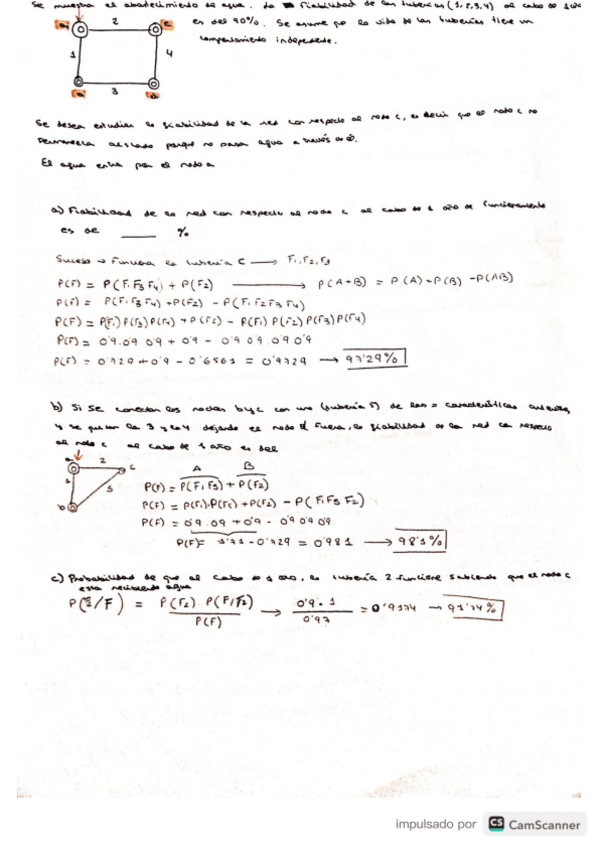 Se muestra el abastecimiento de agua. La fiabilidad de las tuberías (1, 2, 3, 4) al cabo de 1 año
es del 90%. Se asume que la vida de las tuberías tiene un
comportamiento independiente.
a 2 c
1 4
b 3 d
Se desea estudiar la fiabilidad de la red con respecto al nodo c, es decir que el nodo c no
permanezca aislado porque no pasa agua a través de él.
El agua entra por el nodo a
a) Fiabilidad de la red con respecto al nodo c al cabo de 1 año de funcionamiento
es de ____ %
Suceso → Funciona la tubería C → F₁, F₂, F₃
P(F) = P(F₁ F₃ F₄) + P(F₂) → P(A+B) = P(A) + P(B) - P(AB)
P(F) = P(F₁ F₃ F₄) + P(F₂) - P(F₁ F₂ F₃ F₄)
P(F) = P(F₁) P(F₃) P(F₄) + P(F₂) - P(F₁) P(F₂) P(F₃) P(F₄)
P(F) = 0'9 . 0'9 0'9 + 0'9 - 0'9 0'9 0'9 0'9
P(F) = 0'729 + 0'9 - 0'6561 = 0'9729 → 97'29%
b) Si se conectan los nodos b y c con una (tubería 5) de las = características anteriores
y se quitan la 3 y la 4 dejando el nodo d fuera, la fiabilidad de la red con respecto
al nodo c al cabo de 1 año es del
a 2 c
1 5
b
A B
P(F) = P(F₁, F₅) + P(F₂)
P(F) = P(F₁) . P(F₅) + P(F₂) - P(F₁ F₅ F₂)
P(F) = 0'9 . 0'9 + 0'9 - 0'9 0'9 0'9
P(F) = 1'71 - 0'729 = 0'981 → 98'1%
c) Probabilidad de que al cabo de 1 año, la tubería 2 funcione sabiendo que el nodo c
está recibiendo agua
P(F₂/F) = P(F₂) P(F/F₂) / P(F) → 0'9 . 1 / 0'97 = 0'9174 → 91'74%
impulsado por CS CamScanner